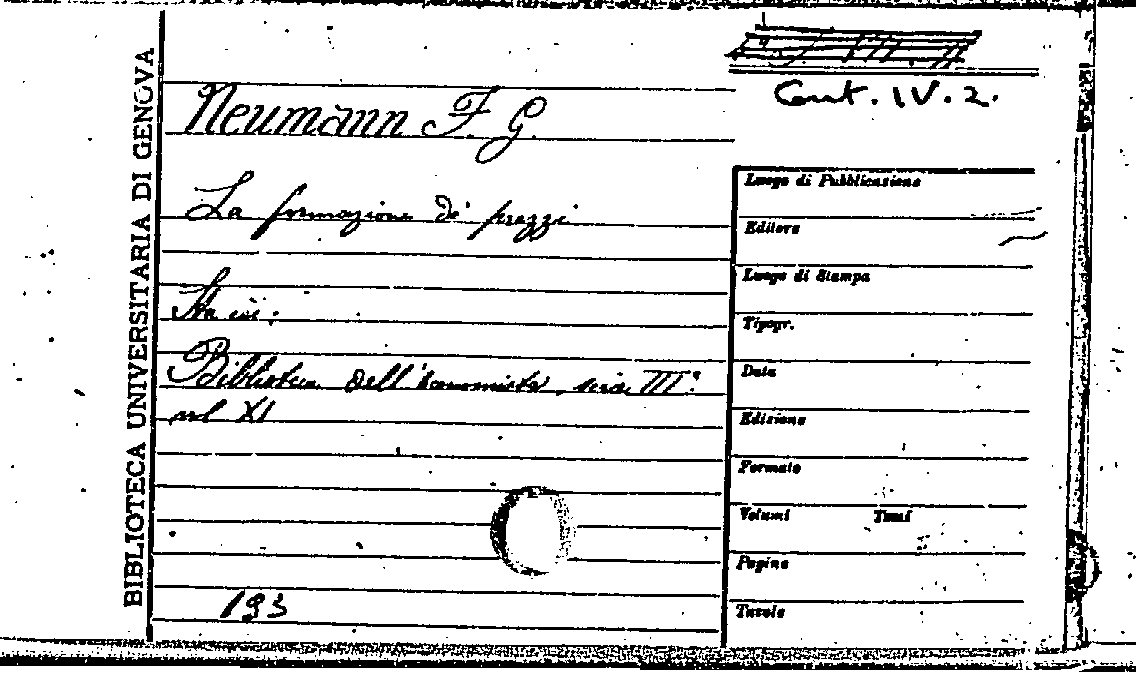 BIBLIOTECA UNIVERSITARIA DI GENOVA
Cont. IV. 2.
Neumann F. G.
La formazione de' prezzi
Sta in:
Biblioteca dell'economista, serie III.ª
vol XI
193
Luogo di Pubblicazione
Editore
Luogo di Stampa
Tipogr.
Data
Edizione
Formato
Volumi Tomi
Pagine
Tavole